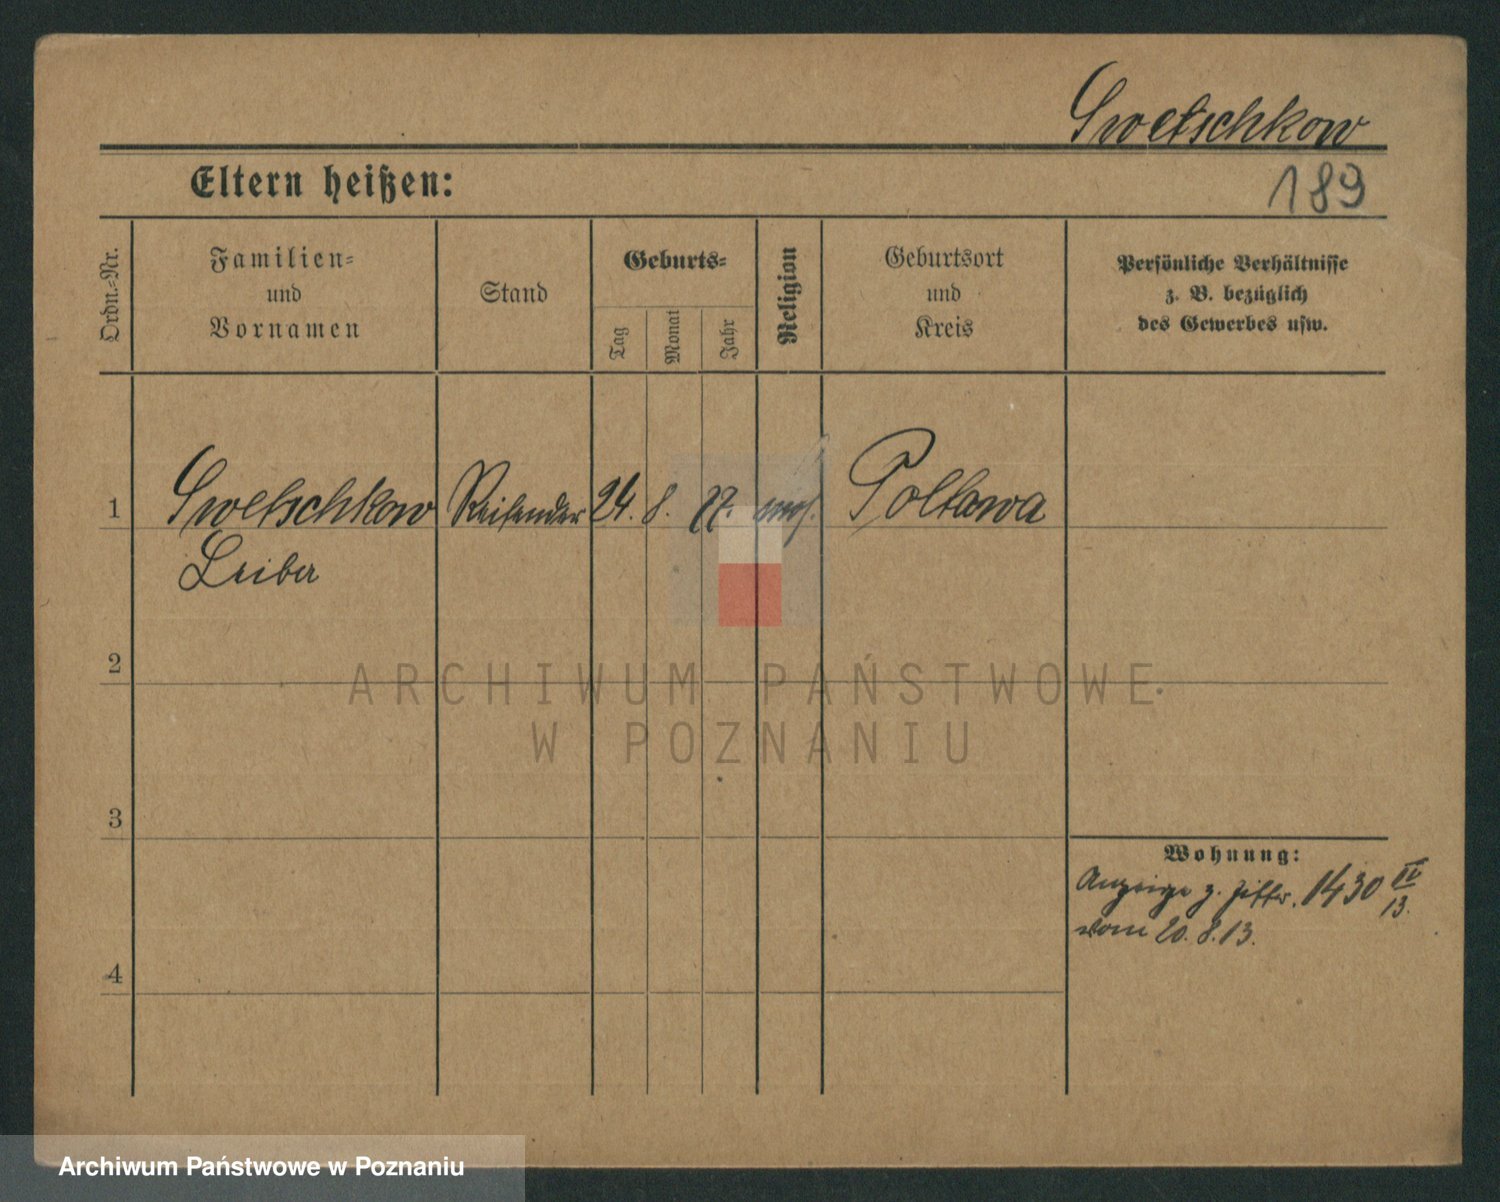 Swetschkow
Eltern heißen:
189
Ordn.-Nr.
Familien-
und
Vornamen
Stand
Geburts-
Tag
Monat
Jahr
Religion
Geburtsort
und
Kreis
Persönliche Verhältnisse
z. B. bezüglich
des Gewerbes usw.
1 Swetschkow Reisender 24. 8. 77. mos. Poltawa
Leiber
2
ARCHIWUM PAŃSTWOWE
W POZNANIU
3
Wohnung:
Anzeige z. Ziffer. 1430 IV
13.
vom 20. 8. 13.
4
Archiwum Państwowe w Poznaniu